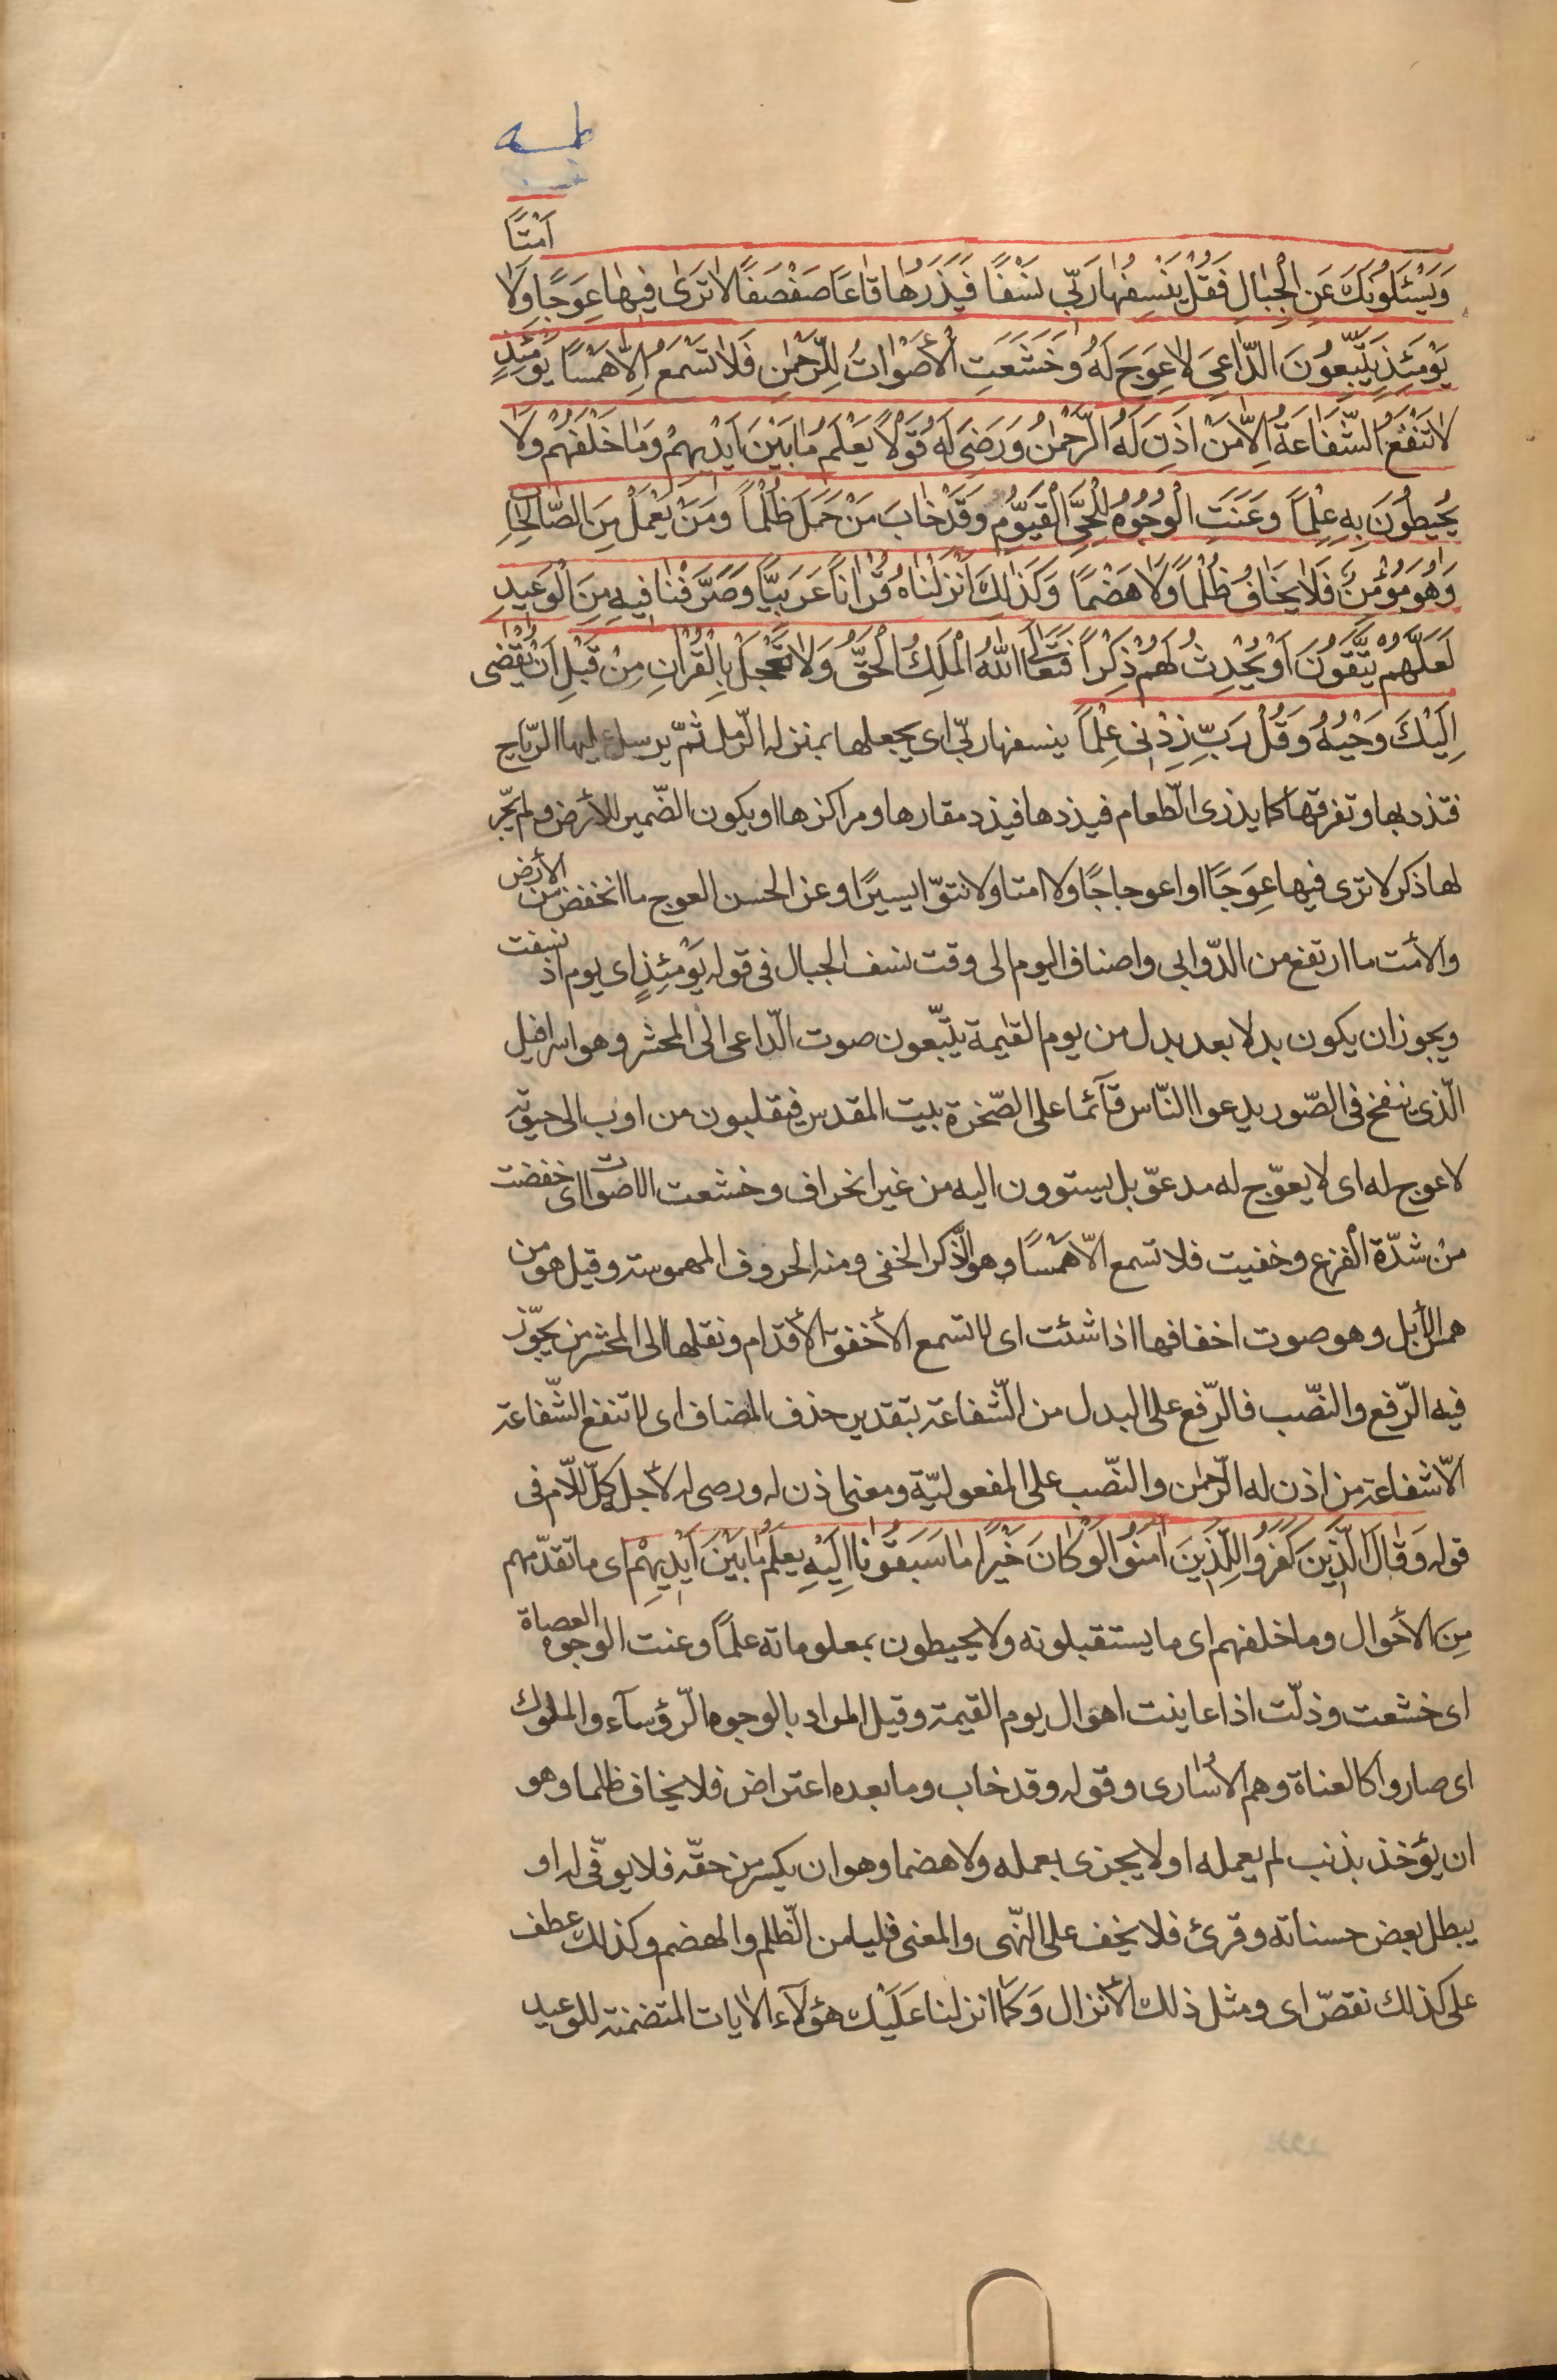 طه
اَمْتًا
وَيَسْئَلُونَكَ عَنِ الْجِبٰالِ فَقُلْ يَنْسِفُهٰا رَبّى نَسْفًا فَيَذَرُهٰا قٰاعًا صَفْصَفًا لاٰ تَرٰى فيهٰا عِوَجًا وَلاٰ
يَوْمَئِذٍ يَتَّبِعُونَ الدّٰاعِىَ لاٰ عِوَجَ لَهُ وَخَشَعَتِ الْأَصْوٰاتُ لِلرَّحْمٰنِ فَلاٰ تَسْمَعُ اِلّاٰ هَمْسًا يَوْمَئِذٍ
لاٰ تَنْفَعُ الشَّفٰاعَةُ اِلّاٰ مَنْ اَذِنَ لَهُ الرَّحْمٰنُ وَرَضِىَ لَهُ قَوْلاً يَعْلَمُ مٰا بَيْنَ اَيْديهِمْ وَمٰا خَلْفَهُمْ وَلاٰ
يُحيطُونَ بِهِ عِلْمًا وَعَنَتِ الْوُجُوهُ لِلْحَىِّ الْقَيُّومِ وَقَدْ خٰابَ مَنْ حَمَلَ ظُلْمًا وَمَنْ يَعْمَلْ مِنَ الصّٰالِحٰاتِ
وَهُوَ مُؤْمِنٌ فَلاٰ يَخٰافُ ظُلْمًا وَلاٰ هَضْمًا وَكَذٰلِكَ اَنْزَلْنٰاهُ قُرْاٰنًا عَرَبِيًّا وَصَرَّفْنٰا فيهِ مِنَ الْوَعيدِ
لَعَلَّهُمْ يَتَّقُونَ اَوْ يُحْدِثُ لَهُمْ ذِكْرًا فَتَعٰالَى اللّٰهُ الْمَلِكُ الْحَقُّ وَلاٰ تَعْجَلْ بِالْقُرْاٰنِ مِنْ قَبْلِ اَنْ يُقْضٰى
اِلَيْكَ وَحْيُهُ وَقُلْ رَبِّ زِدْنى عِلْمًا ينسفها ربّى اى يجعلها بمنزله الرّمل ثمّ يرسل عليها الرّياح
فتذد بها وتفرقها كما يذرى الطّعام فيذدها فيذد مقارها ومراكزها او يكون الضّمير للأرض ولم يجّر
لها ذكر لا ترى فيها عِوَجًا او اعوجاجًا ولا امتا ولا نتوّا يسيرًا وعن الحسن العوج ما انخفض من الأرض
والأمت ما ارتفع من الدّوابى واصناف اليوم الى وقت نسف الجبال فى قوله يَوْمَئِذٍ اى يوم اذ نسفت
ويجوز ان يكون بدلا بعد بدل من يوم القيٰمة يتّبعون صوت الدّاعى الى المحشر وهو اسرافيل
الّذى ينفخ فى الصّور يدعوا النّاس قآئما على الصّخرة بيت المقدس فيقلبون من اوب الى
لا عوج له اى لا يعوّج له مدعوّ بل يستوون اليه من غير انحراف وخشعت الاصوات اى خفضت
من شدّة الفزع وخفيت فلا تسمع الّا هَمْسًا وهو الذّكر الخفى ومنه الحروف المهموسة وقيل هو من
همس الأبل وهو صوت اخفافها اذا شئت اى لا تسمع الأخفق الأقدام ونقلها الى المحشر من يجوّز
فيه الرّفع والنّصب فالرّفع على البدل من الشّفاعة بتقدير حذف المضاف اى لا تنفع الشّفاعة
الّا شفاعة من اذن له الرّحمٰن والنّصب على المفعوليّة ومعنى اذن له ورضى له لأجله ككلّ اللّام فى
قوله وَقٰالَ الَّذينَ كَفَرُوا لِلَّذينَ اٰمَنُوا لَوْ كٰانَ خَيْرًا مٰا سَبَقُونٰا اِلَيْهِ يعلَمُ مٰا بَيْنَ اَيْديهِمْ اى ما تقدّمهم
مِنَ الأحوال وما خلفهم اى ما يستقبلونه ولا يحيطون بمعلوماته علمًا وعنت الوجوه العصاة
اى خشعت وذلّت اذا عاينت اهوال يوم القيمة وقيل المراد بالوجوه الرّؤسآء والملوك
اى صاروا كالعناة وهم الأسٰارى وقوله وقد خاب وما بعده اعتراض فلا يخاف ظلما وهو
ان يؤخذ بذنب لم يعمله او لا يجزى بعمله ولا هضما وهو ان يكسر من حقّه فلا يوفّى له او
يبطل بعض حسناته وقرئ فلا يخف على النّهى والمعنى فليامن الظّلم والهضم وكذلك عطف
على كذلك نقصّ اى ومثل ذلك الأنزال وَكَمٰا انزلنا عَلَيْك هؤلآء الايات المتضمنة للوعيد